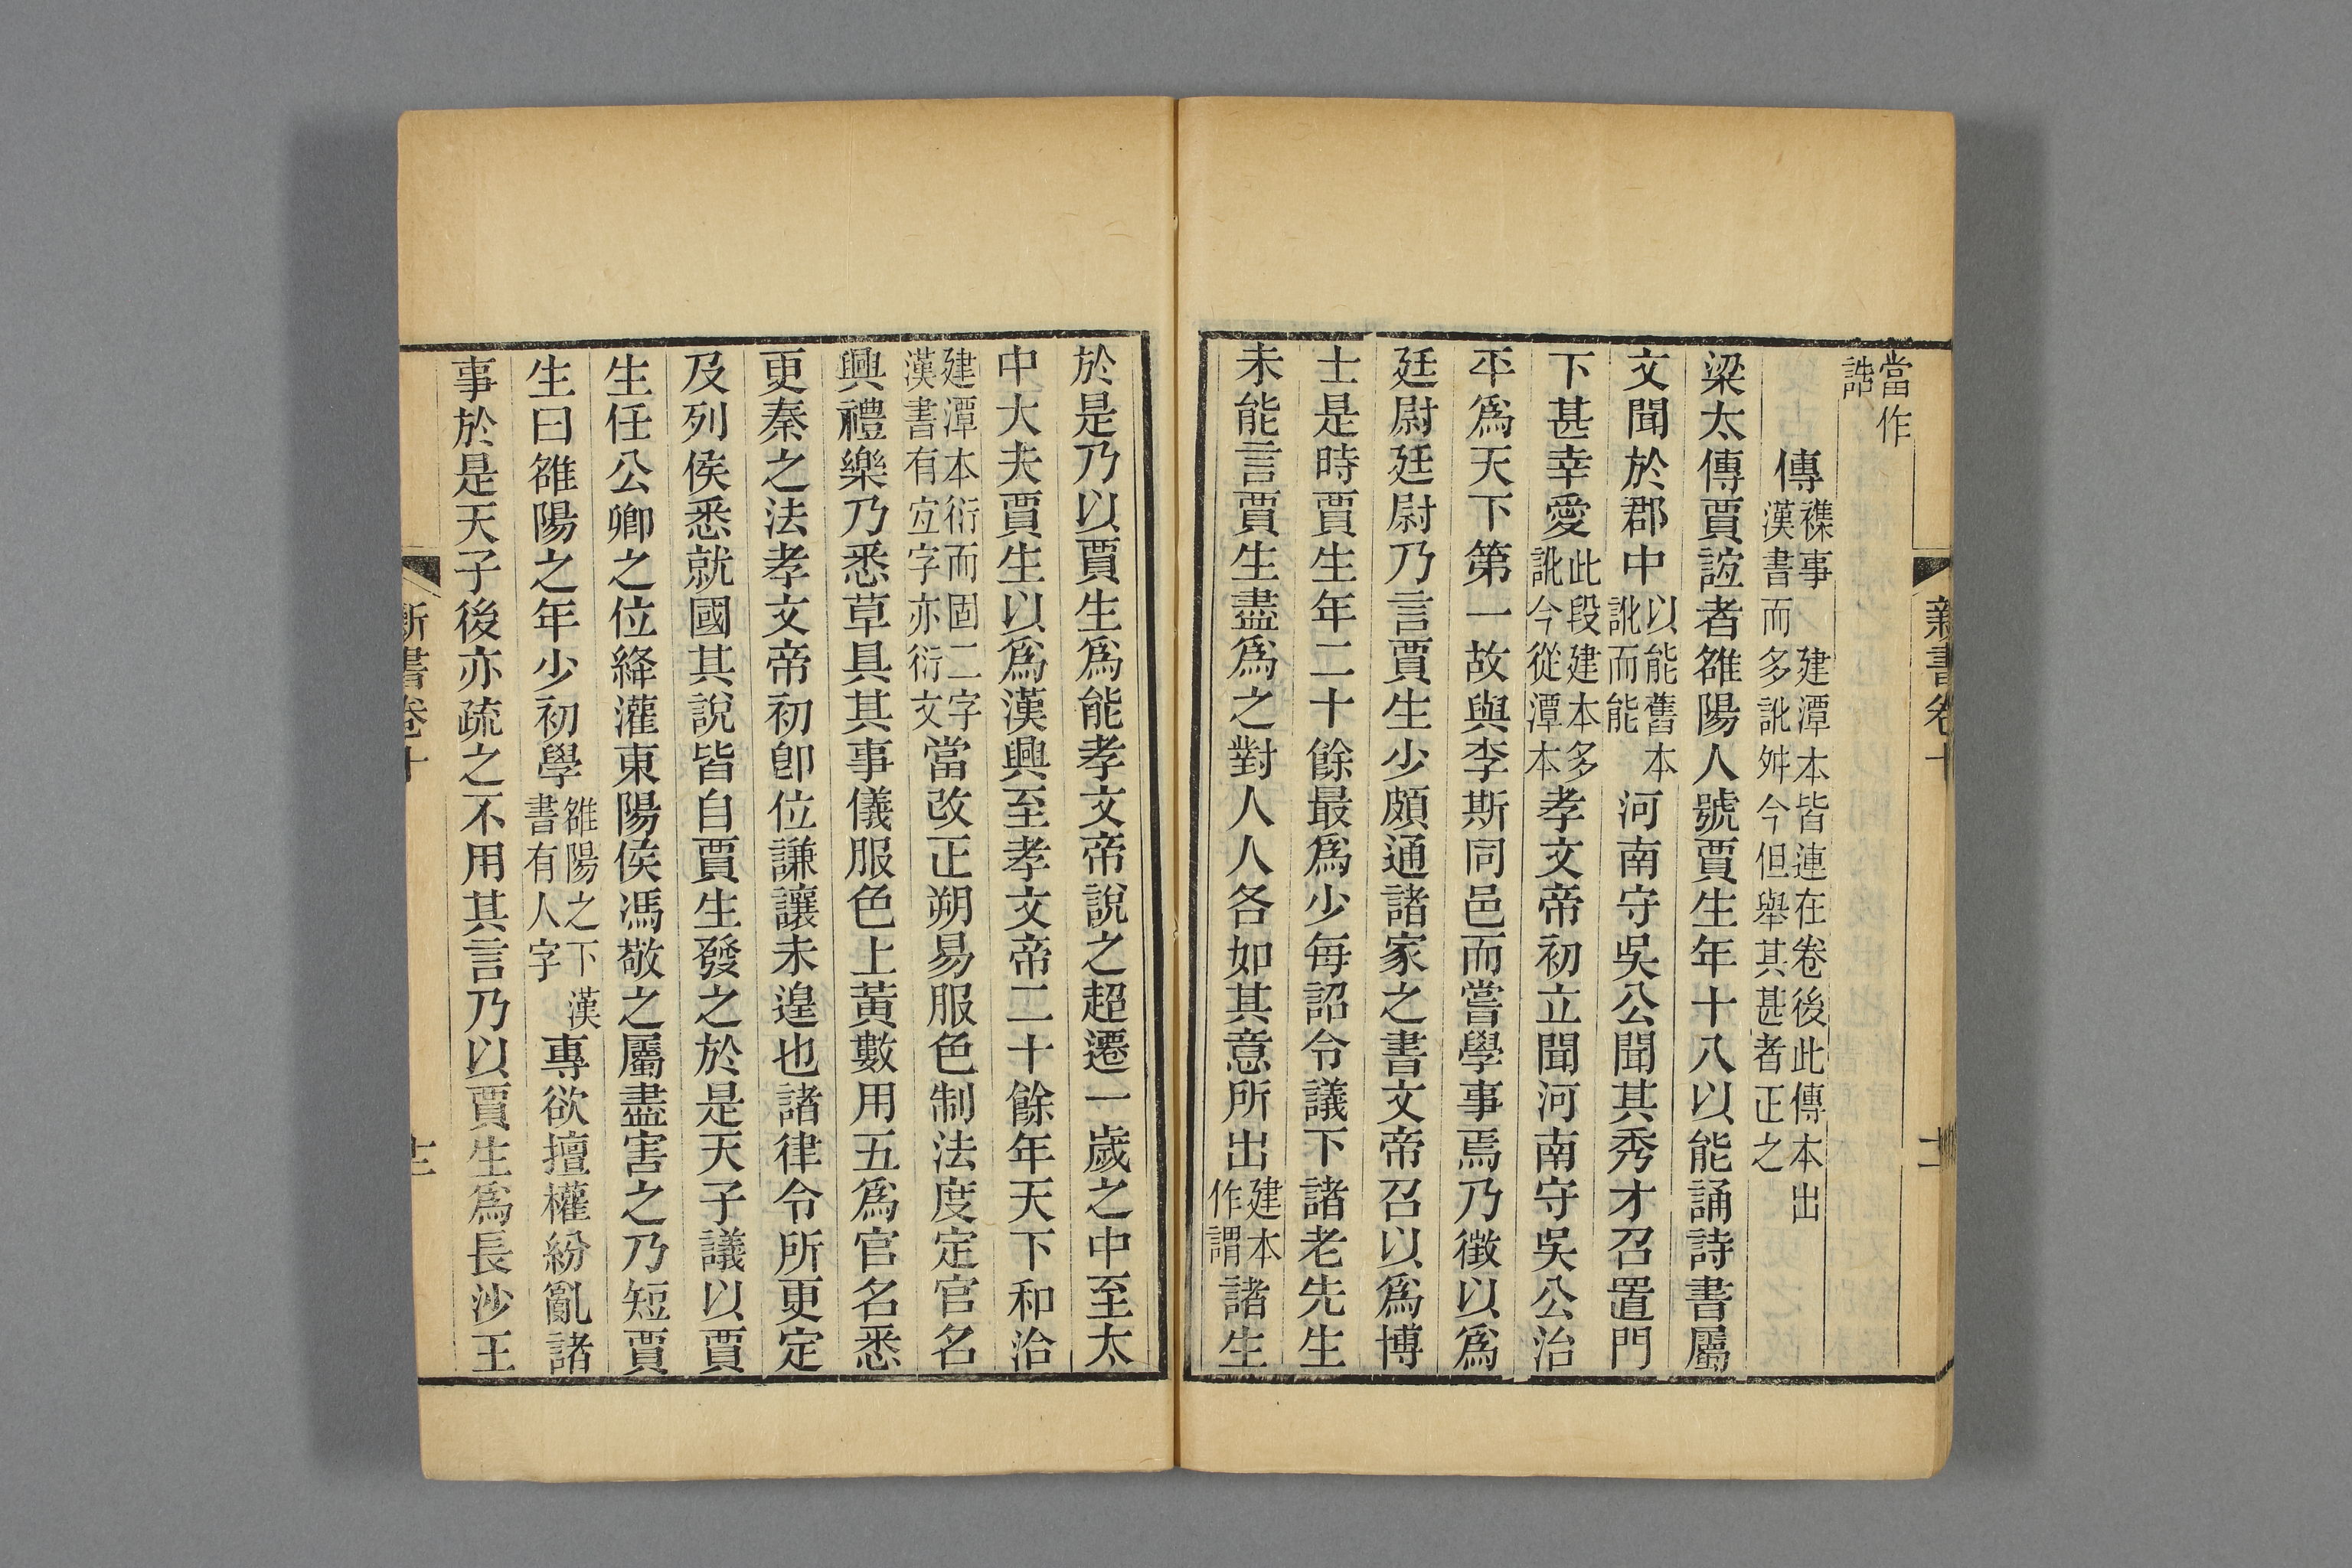 新書卷十
當作
誥
傳襍事 建潭本皆連在卷後此傳本出
漢書而多訛舛今但舉其甚者正之
梁太傅賈誼者雒陽人號賈生年十八以能誦詩書屬
文聞於郡中以能舊本訛而能河南守吳公聞其秀才召置門
下甚幸愛此段建本多訛今從潭本孝文帝初立聞河南守吳公治
平爲天下第一故與李斯同邑而嘗學事焉乃徵以爲
廷尉廷尉乃言賈生少頗通諸家之書文帝召以爲博
士是時賈生年二十餘最爲少每詔令議下諸老先生
未能言賈生盡爲之對人人各如其意所出建本作謂諸生
於是乃以賈生爲能孝文帝說之超遷一歲之中至太
中大夫賈生以爲漢興至孝文帝二十餘年天下和洽
建潭本衍而固二字漢書有宜字亦衍文當改正朔易服色制法度定官名
興禮樂乃悉草具其事儀服色上黃數用五爲官名悉
更秦之法孝文帝初卽位謙讓未遑也諸律令所更定
及列侯悉就國其說皆自賈生發之於是天子議以賈
生任公卿之位絳灌東陽侯馮敬之屬盡害之乃短賈
生曰雒陽之年少初學雒陽之下漢書有人字專欲擅權紛亂諸
事於是天子後亦疏之不用其言乃以賈生爲長沙王
新書卷十